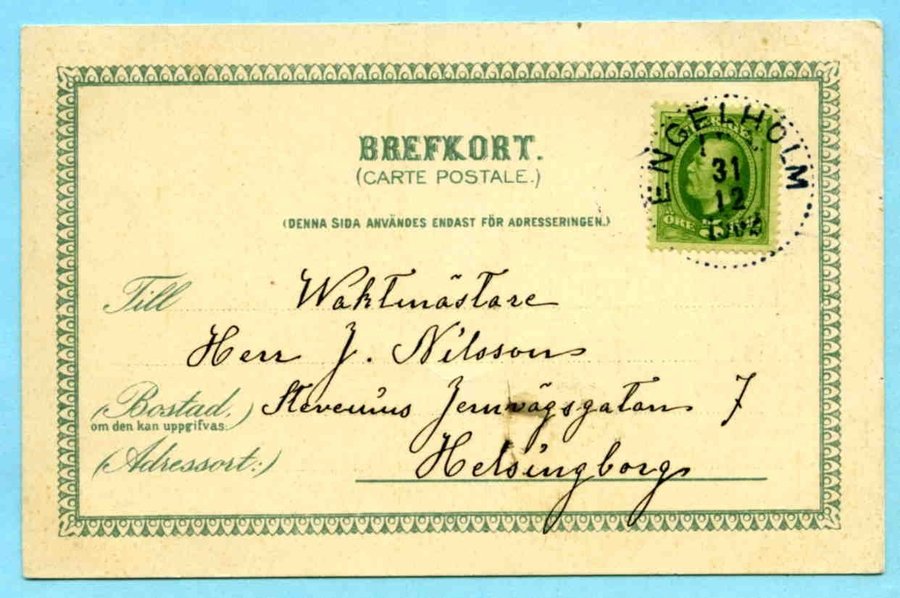 BREFKORT.
(CARTE POSTALE.)
(DENNA SIDA ANVÄNDES ENDAST FÖR ADRESSERINGEN.)
ENGELHOLM
31
12
ÖRE
Till Waktmästare
Herr J. Nilsson
(Bostad,) Jernvägsgatan 7
om den kan uppgifvas.
(Adressort:) Helsingborg